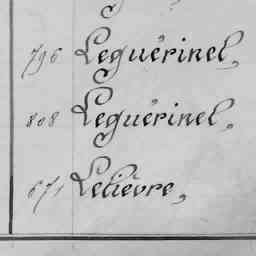 796 Leguérinel,
808 Leguérinel,
671 Lelièvre,